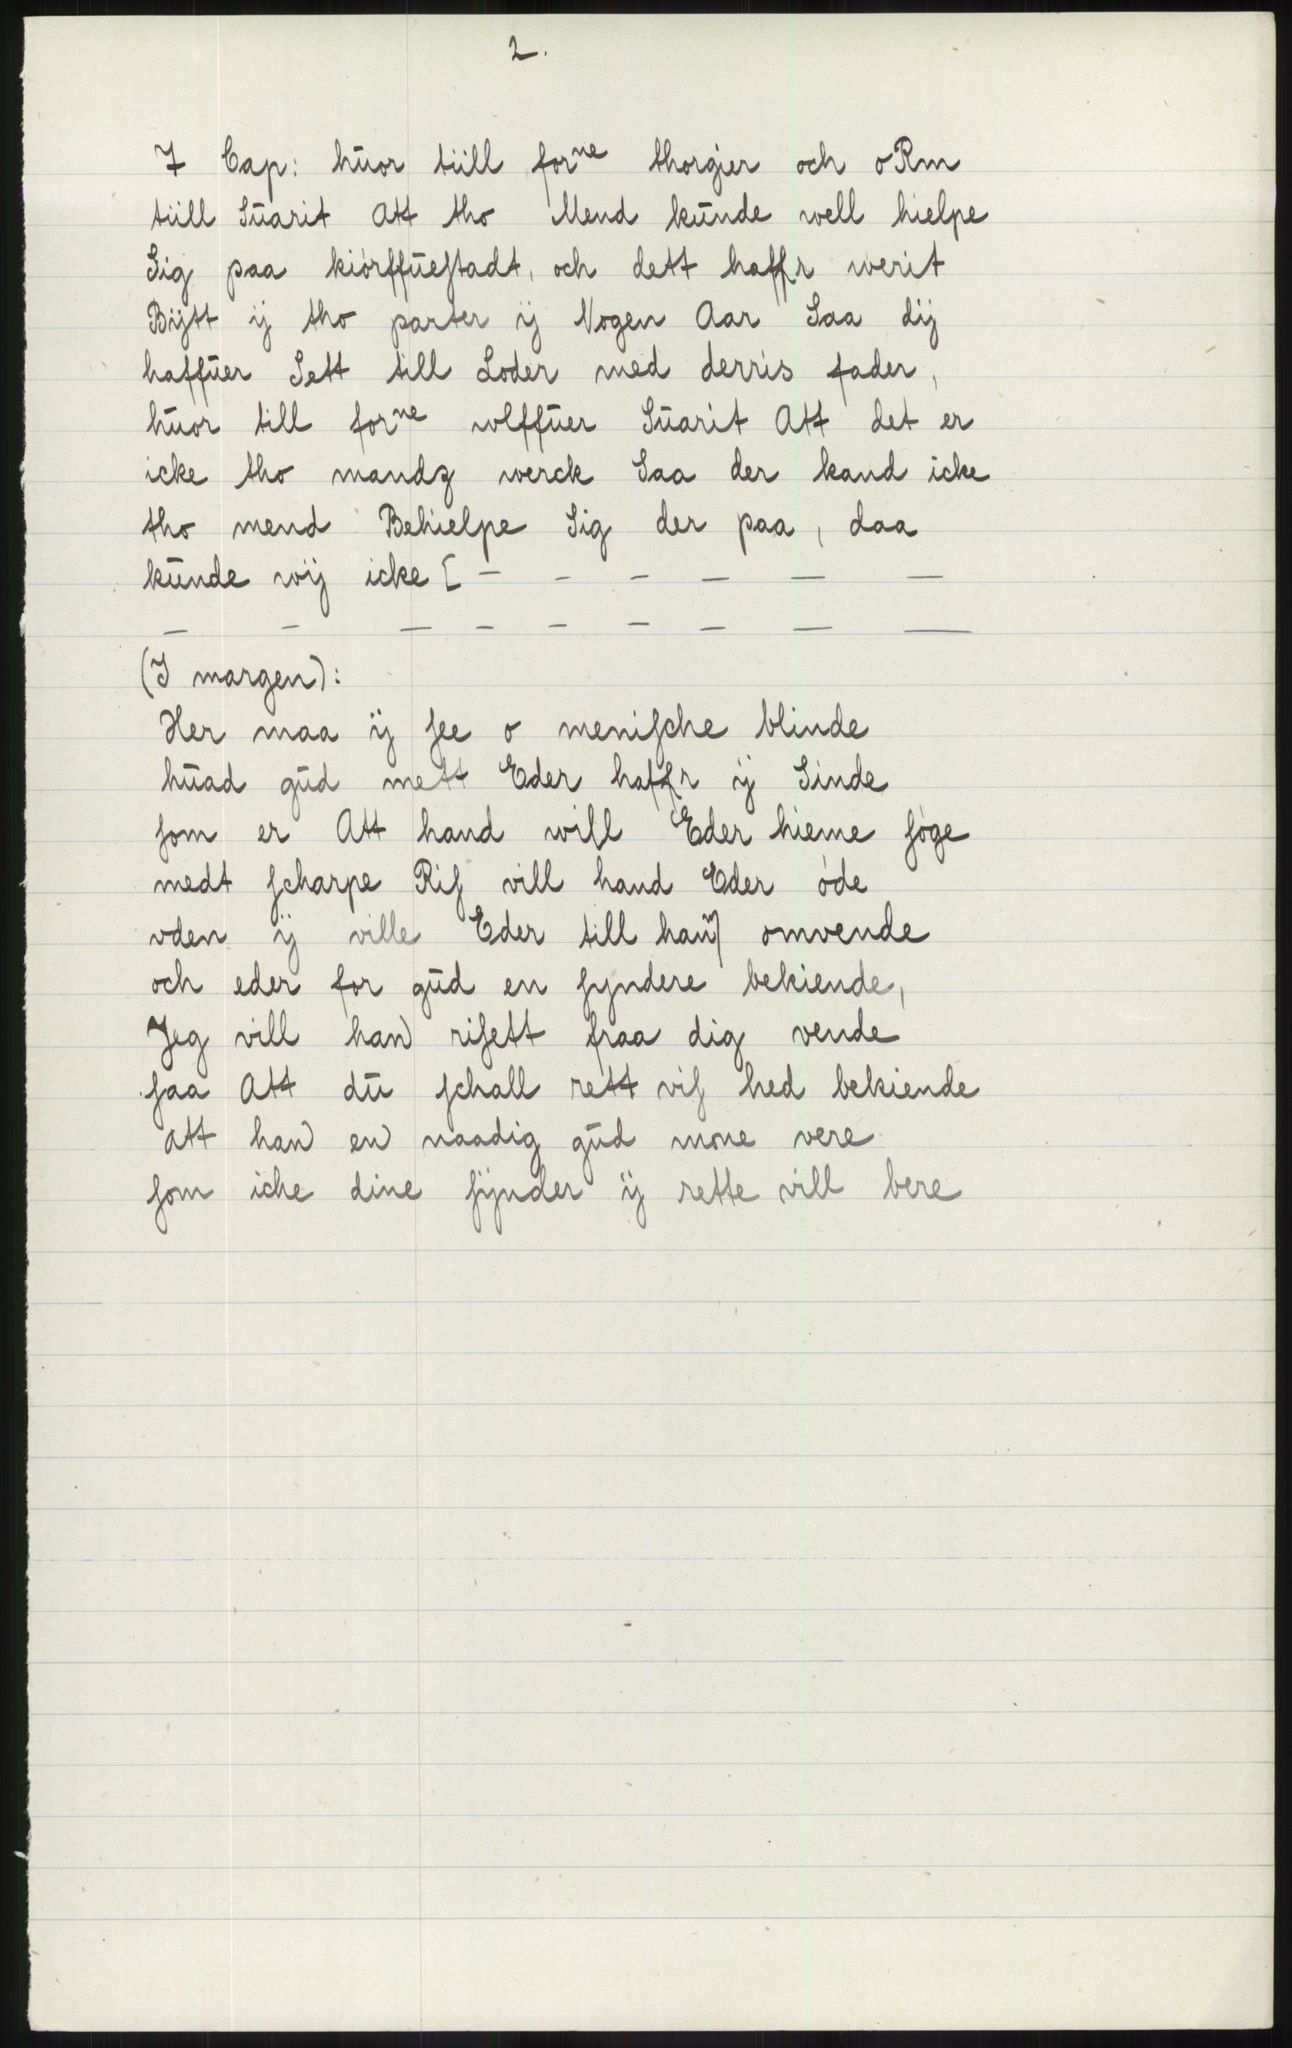 2.
7 Cap: huor tiill forne thorgier och oRm
tiill Suarit Att tho Mend kunde well hielpe
Sig paa kiórffueſtadt, och dett haffr werit
Bÿtt ÿ tho parter ÿ Nogen Aar Saa dÿ
haffuer Sett till Loder med derris fader,
huor till forne wlffuer Suarit Att det er
icke tho mandz werck Saa der kand icke
tho mend Behielpe Sig der paa, daa
kunde wÿ icke [ — — — — — —
— — — — — — — — —
(I margen):
Her maa ÿ ſee o meniſche blinde
huad gud mett Eder haffr ÿ Sinde
ſom er Att hand will Eder hieme ſóge
medt ſcharpe Riſ vill hand Eder óde
vden ÿ ville Eder till hañ omvende
och eder for gud en ſyndere bekiende,
Jeg vill han riſett fraa dig vende
ſaa Att du ſchall rett viſ hed bekiende
att han en naadig gud mone vere
ſom iche dine ſÿnder ÿ rette vill bere